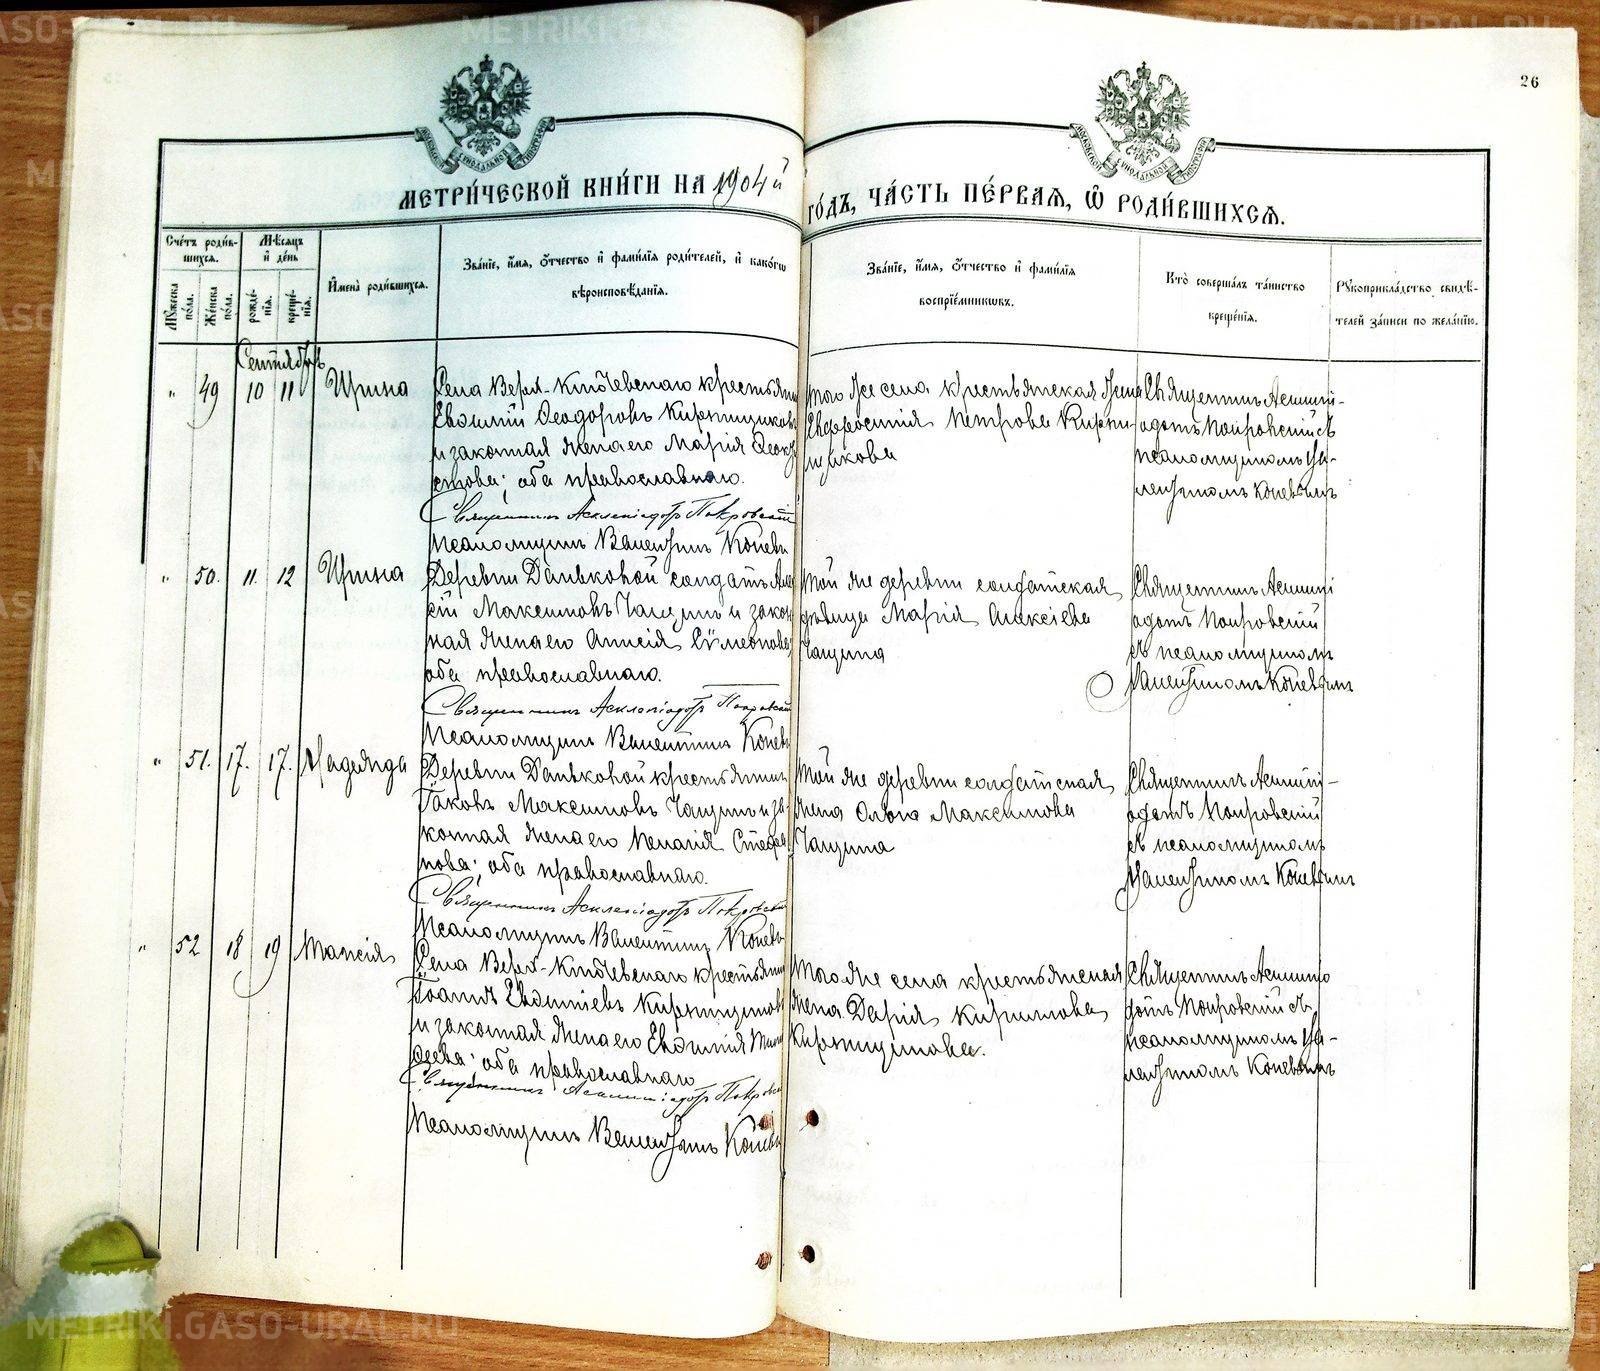 METRIKI.GASO-URAL.RU
26
МЕТРИ́ЧЕСКОЙ КНИ́ГИ НА 1904й ГО́ДЪ, ЧА́СТЬ ПЕ́РВАѦ, Ѡ҆ РОДИ́ВШИХСѦ.
Сче́тъ роди́в-
шихсѧ.
Мꙋ́жеска по́ла.
Же́нска по́ла.
Мѣ́сѧцъ
и҆ де́нь
рожде́-
нїѧ.
креще́-
нїѧ.
И҆мена̀ роди́вшихсѧ.
Зва́нїе, и҆́мѧ, ѻ҆́тчество и҆ фами́лїѧ роди́телей, и҆ како́гѡ
вѣроисповѣ́данїѧ.
Зва́нїе, и҆́мѧ, ѻ҆́тчество и҆ фами́лїѧ
воспрїе́мникѡвъ.
Кто̀ соверша́лъ та́инство
креще́нїѧ.
Рꙋкоприкла́дство свидѣ́-
телей за́писи по жела́нїю.
Сентябрь
" 49 10 11 Ирина
Села Верх-Ключевскаго крестьянин
Евѳимій Ѳеодоровъ Кирпищиковъ
и законная жена его Марія
оба православнаго.
Священникъ Асклепіодотъ Покровскій
Псаломщикъ Валентинъ Коневъ
Того же села крестьянская жена
Евфросинія Петрова Кирпи-
щикова
Священникъ Асклипі-
одотъ Покровскій съ
псаломщикомъ Ва-
лентиномъ Коневымъ
" 50. 11. 12 Ирина
Деревни Даньковой солдатъ Але
сій Максимовъ Чащинъ и закон
ная жена его Анисія Сѵмеонова
оба православнаго.
Священникъ Асклепіодотъ Покровскій
Псаломщикъ Валентинъ Коневъ
Той же деревни солдатская
дѣвица Марія Алексіева
Чащина
Священникъ Асклипі
одотъ Покровскій
съ псаломщикомъ
Валентиномъ Коневымъ
" 51. 17. 17. Надежда
Деревни Даньковой крестьянинъ
Іаковъ Максимовъ Чащинъ и за-
конная жена его Пелагія Стефа
нова; оба православнаго.
Священникъ Асклепіодотъ Покровскій
Псаломщикъ Валентинъ Коневъ
Той же деревни солдатская
жена Ольга Максимова
Чащина
Священникъ Асклипі-
одотъ Покровскій
съ псаломщикомъ
Валентиномъ Коневымъ
" 52 18 19 Таисія
Села Верх-Ключевскаго крестьянин
Іоаннъ Евѳиміевъ Кирпищиковъ
и законная жена его Евѳимія
оба православнаго
Священникъ Асклипіодотъ Покровскій
Псаломщикъ Валентинъ Коневъ
Того же села крестьянская
жена Дарія Кириллова
Кирпищикова.
Священникъ Асклипіо
дотъ Покровскій съ
псаломщикомъ Ва-
лентиномъ Коневымъ
METRIKI.GASO-URAL.RU